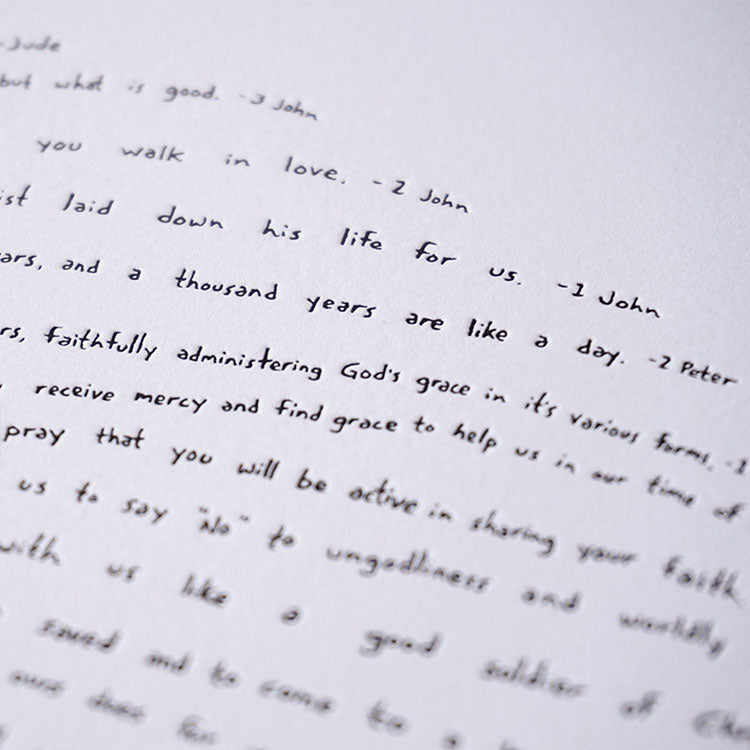 -Jude
but what is good. -3 John
you walk in love. -2 John
ist laid down his life for us. -1 John
ars, and a thousand years are like a day. -2 Peter
rs, faithfully administering God's grace in it's various forms. -1
receive mercy and find grace to help us in our time of
pray that you will be active in sharing your faith
us to say "No" to ungodliness and worldly
with us like a good soldier of Chr
saved and to come to a
ours does for